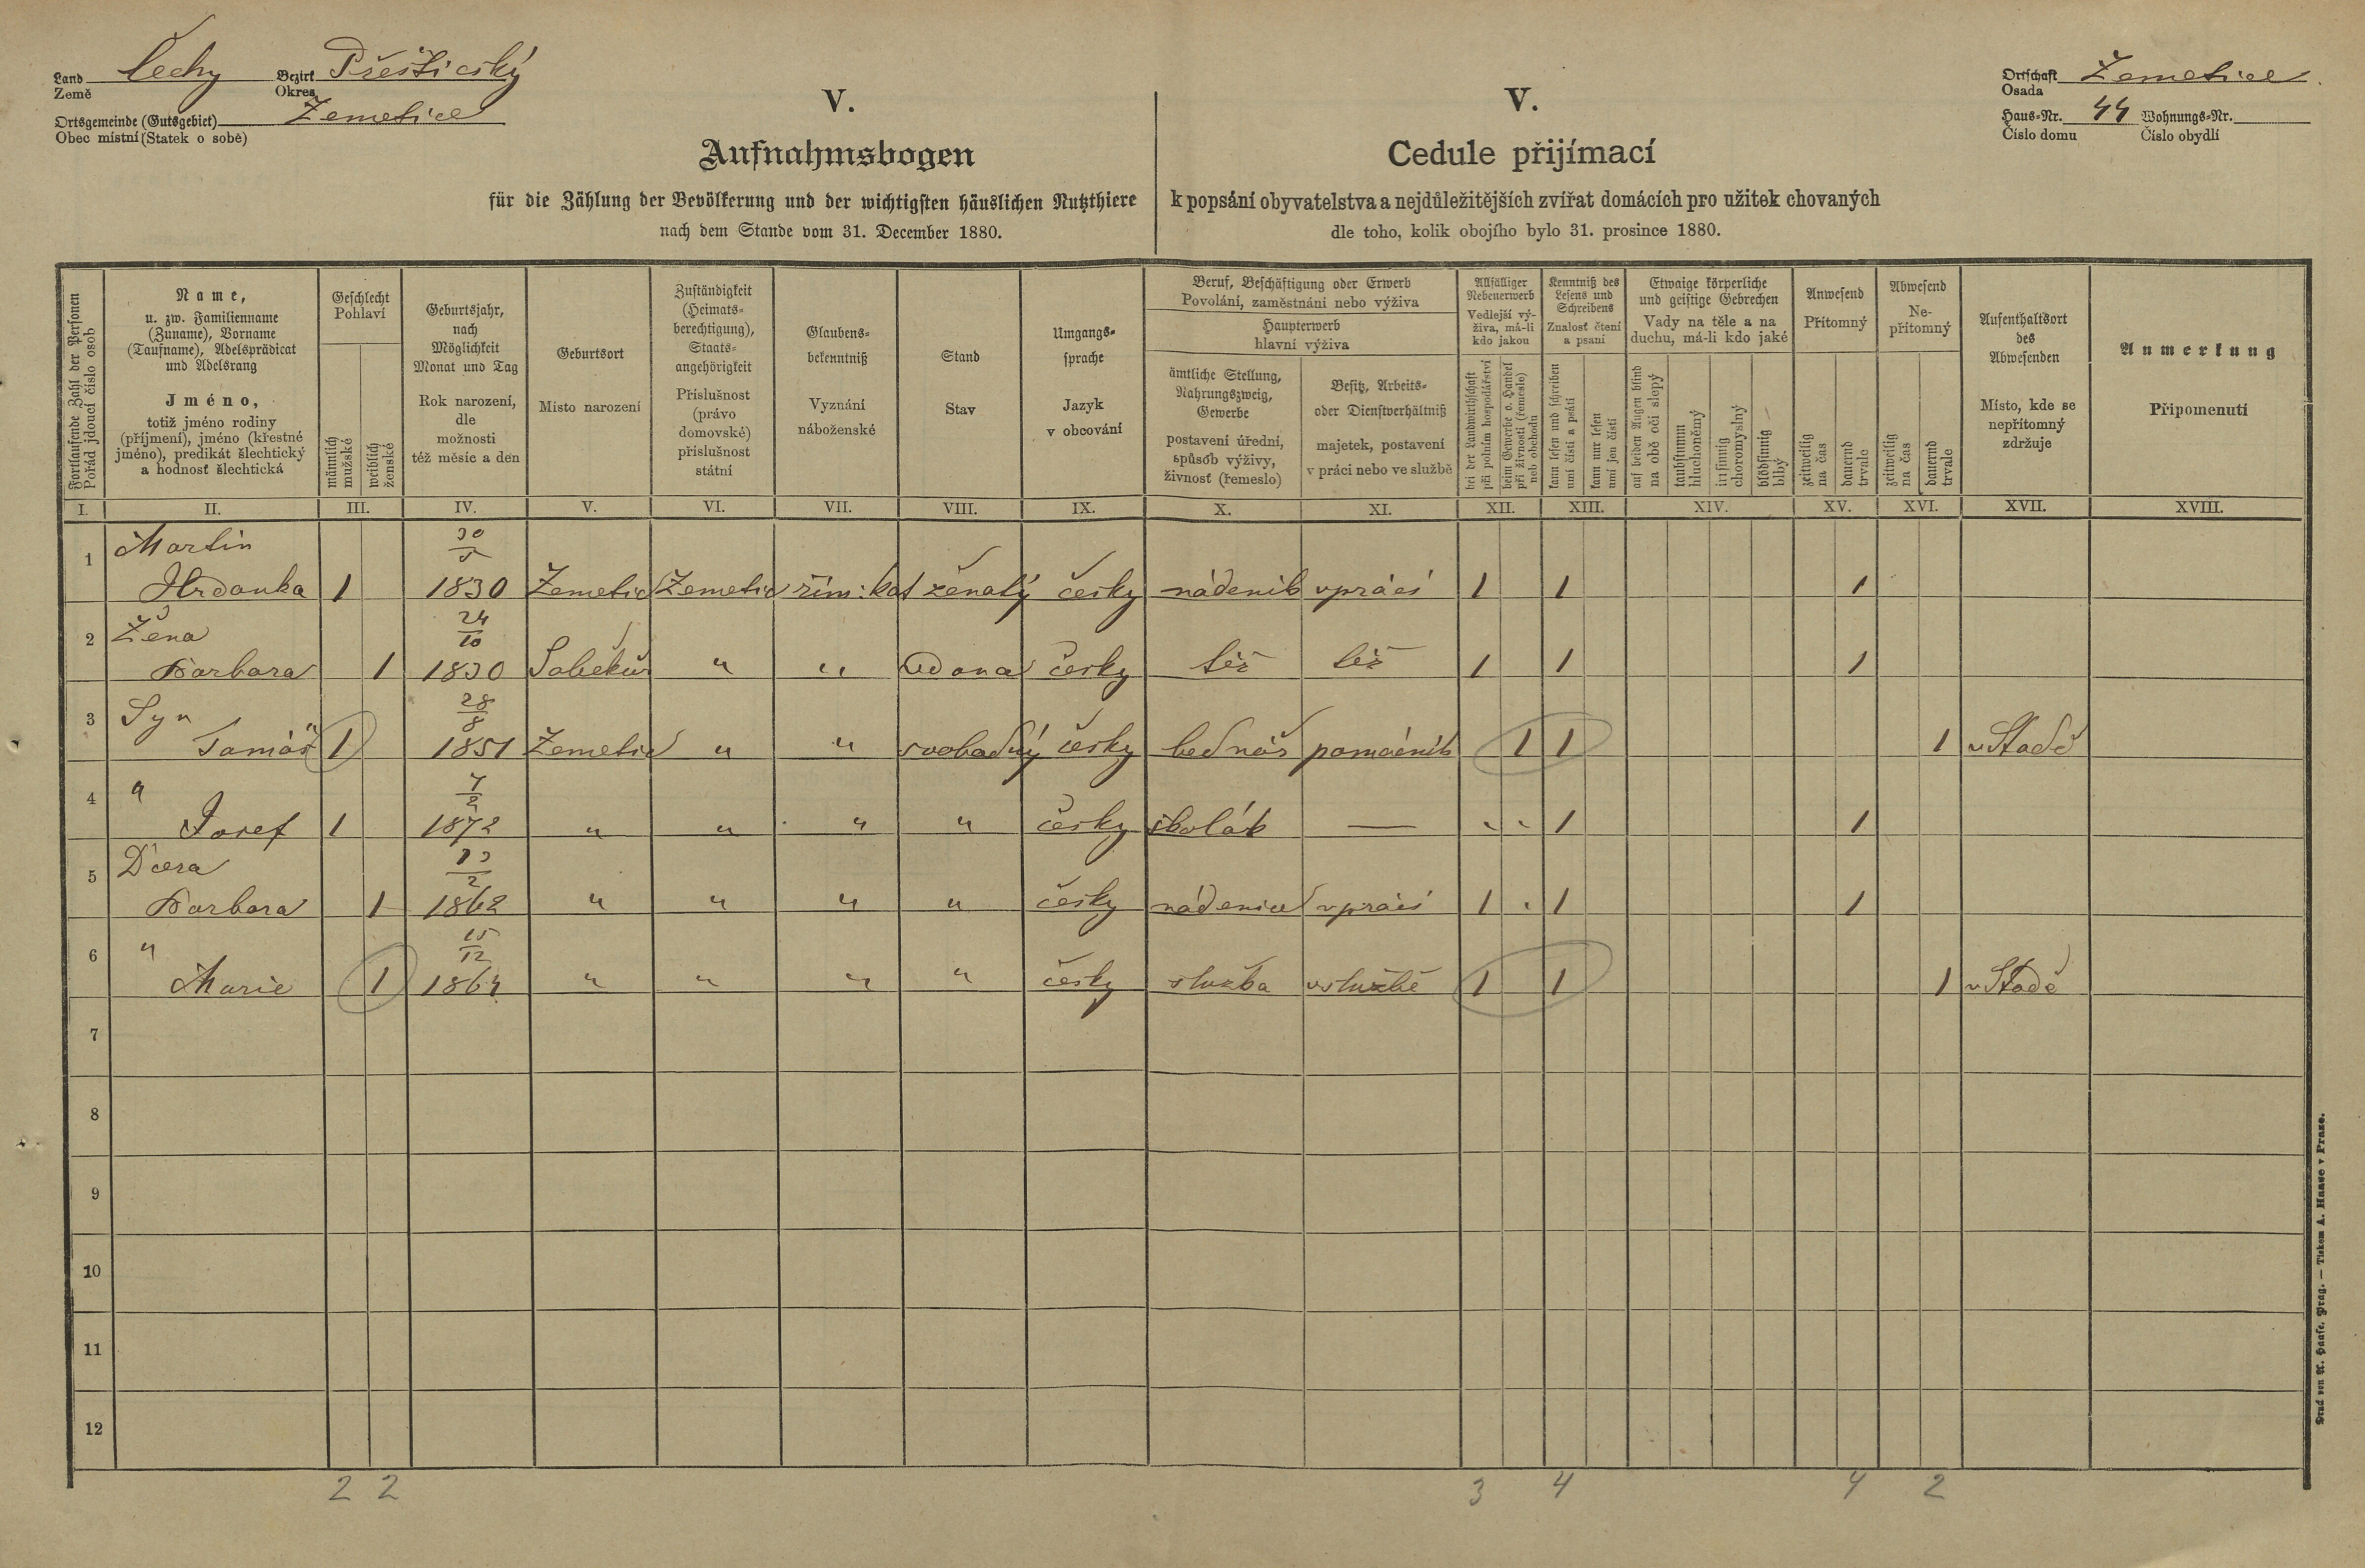 Land Čechy Bezirk Přešticský
Země Okres
Ortsgemeinde (Gutsgebiet) Žemetice
Obec místní (Statek o sobě)
Ortschaft Žemetice
Osada
Haus-Nr. 44 Wohnungs-Nr.
Číslo domu Číslo obydlí
V.
Aufnahmsbogen
für die Zählung der Bevölkerung und der wichtigsten häuslichen Nutzthiere
nach dem Stande vom 31. December 1880.
V.
Cedule přijímací
k popsání obyvatelstva a nejdůležitějších zvířat domácích pro užitek chovaných
dle toho, kolik obojího bylo 31. prosince 1880.
Fortlaufende Zahl der Personen
Pořád jdoucí číslo osob
Name,
u. zw. Familienname
(Zuname), Vorname
(Taufname), Adelsprädicat
und Adelsrang
Jméno,
totiž jméno rodiny
(příjmení), jméno (křestné
jméno), predikát šlechtický
a hodnosť šlechtická
Geschlecht
Pohlaví
männlich
mužské
weiblich
ženské
Geburtsjahr,
nach
Möglichkeit
Monat und Tag
Rok narození,
dle
možnosti
též měsíc a den
Geburtsort
Místo narození
Zuständigkeit
(Heimats-
berechtigung),
Staats-
angehörigkeit
Příslušnost
(právo
domovské)
příslušnost
státní
Glaubens-
bekenntniß
Vyznání
náboženské
Stand
Stav
Umgangs-
sprache
Jazyk
v obcování
Beruf, Beschäftigung oder Erwerb
Povolání, zaměstnání nebo výživa
Haupterwerb
hlavní výživa
ämtliche Stellung,
Nahrungszweig,
Gewerbe
postavení úřední,
spůsób výživy,
živnosť (řemeslo)
Besitz, Arbeits-
oder Dienstverhältniß
majetek, postavení
v práci nebo ve službě
Allfälliger
Nebenerwerb
Vedlejší vý-
živa, má-li
kdo jakou
bei der Landwirthschaft
při polním hospodářství
beim Gewerbe o. Handel
při živnosti (řemeslo)
neb obchodu
Kenntniß des
Lesens und
Schreibens
Znalosť čtení
a psaní
kann lesen und schreiben
umí čísti a psáti
kann nur lesen
umí jen čísti
Etwaige körperliche
und geistige Gebrechen
Vady na těle a na
duchu, má-li kdo jaké
auf beiden Augen blind
na obě oči slepý
taubstumm
hluchoněmý
irrsinnig
choromyslný
blödsinnig
blbý
Anwesend
Přítomný
zeitweilig
na čas
dauernd
trvale
Abwesend
Ne-
přítomný
zeitweilig
na čas
dauernd
trvale
Aufenthaltsort
des
Abwesenden
Místo, kde se
nepřítomný
zdržuje
Anmerkung
Připomenutí
I. II. III. IV. V. VI. VII. VIII. IX. X. XI. XII. XIII. XIV. XV. XVI. XVII. XVIII.
1 Martin 30/5
Hrdonka 1 1830 Žemetic Žemetic řím: kat ženatý česky nádeník v práci 1 1 1
2 Žena 24/10
Barbara 1 1830 " " vdana česky též též 1 1 1
3 Syn 28/8
Tomáš 1 1851 Žemetic " " svobodný česky bednář pomocník 1 1 1 v Stodě
4 " 7/2
Josef 1 1872 " " " " česky školák — 1 1
5 Dcera
Barbora 1 1862 " " " " česky nádenice v práci 1 1 1
6 " 15/12
Marie 1 1864 " " " " česky služba v službě 1 1 1 v Stodě
7
8
9
10
11
12
2 2 3 4 4 2
Druck von A. Haase, Prag. — Tiskem A. Haase v Praze.